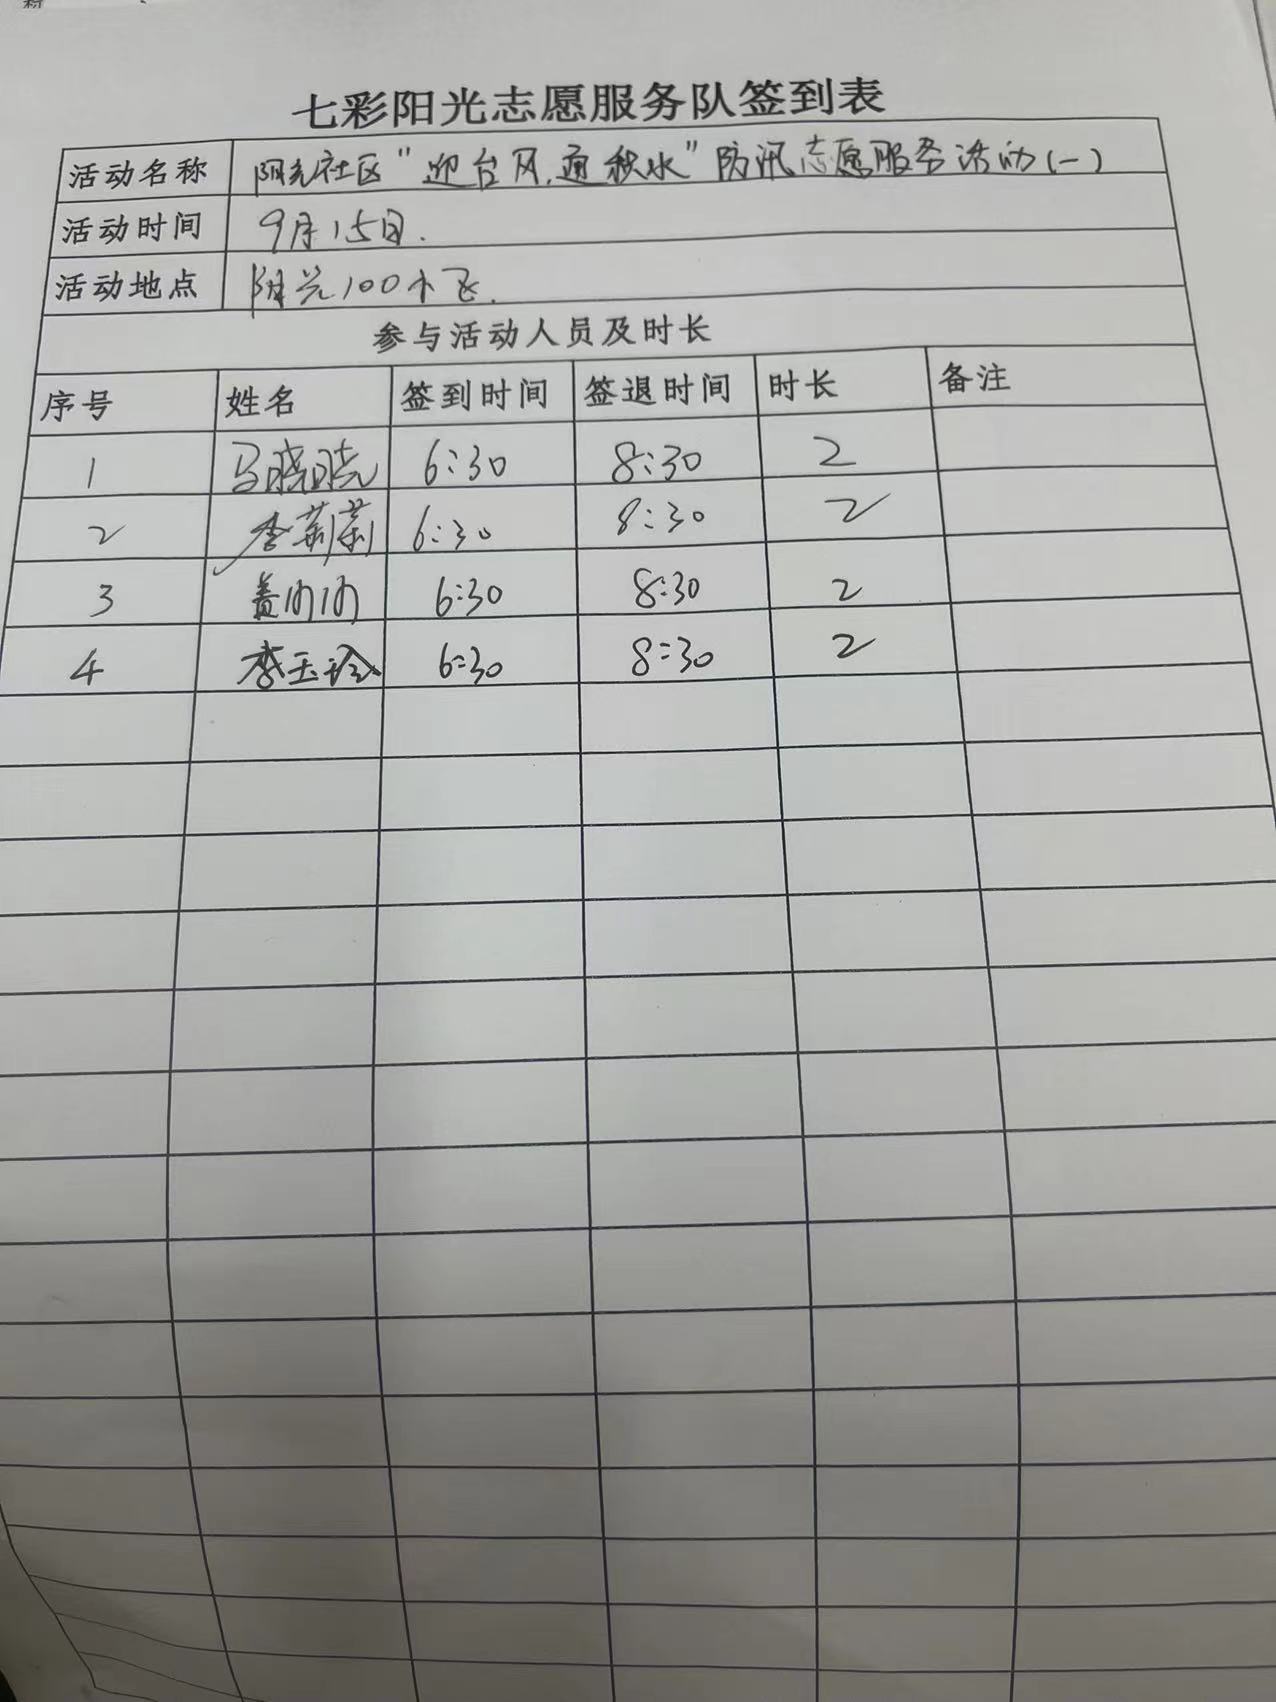 七彩阳光志愿服务队签到表
活动名称 阳光社区“迎台风,通积水”防汛志愿服务活动(一)
活动时间 9月15日.
活动地点 阳光100小区.
参与活动人员及时长
序号 姓名 签到时间 签退时间 时长 备注
1 马晓晓 6:30 8:30 2
2 李莉莉 6:30 8:30 2
3 6:30 8:30 2
4 李玉玲 6:30 8:30 2